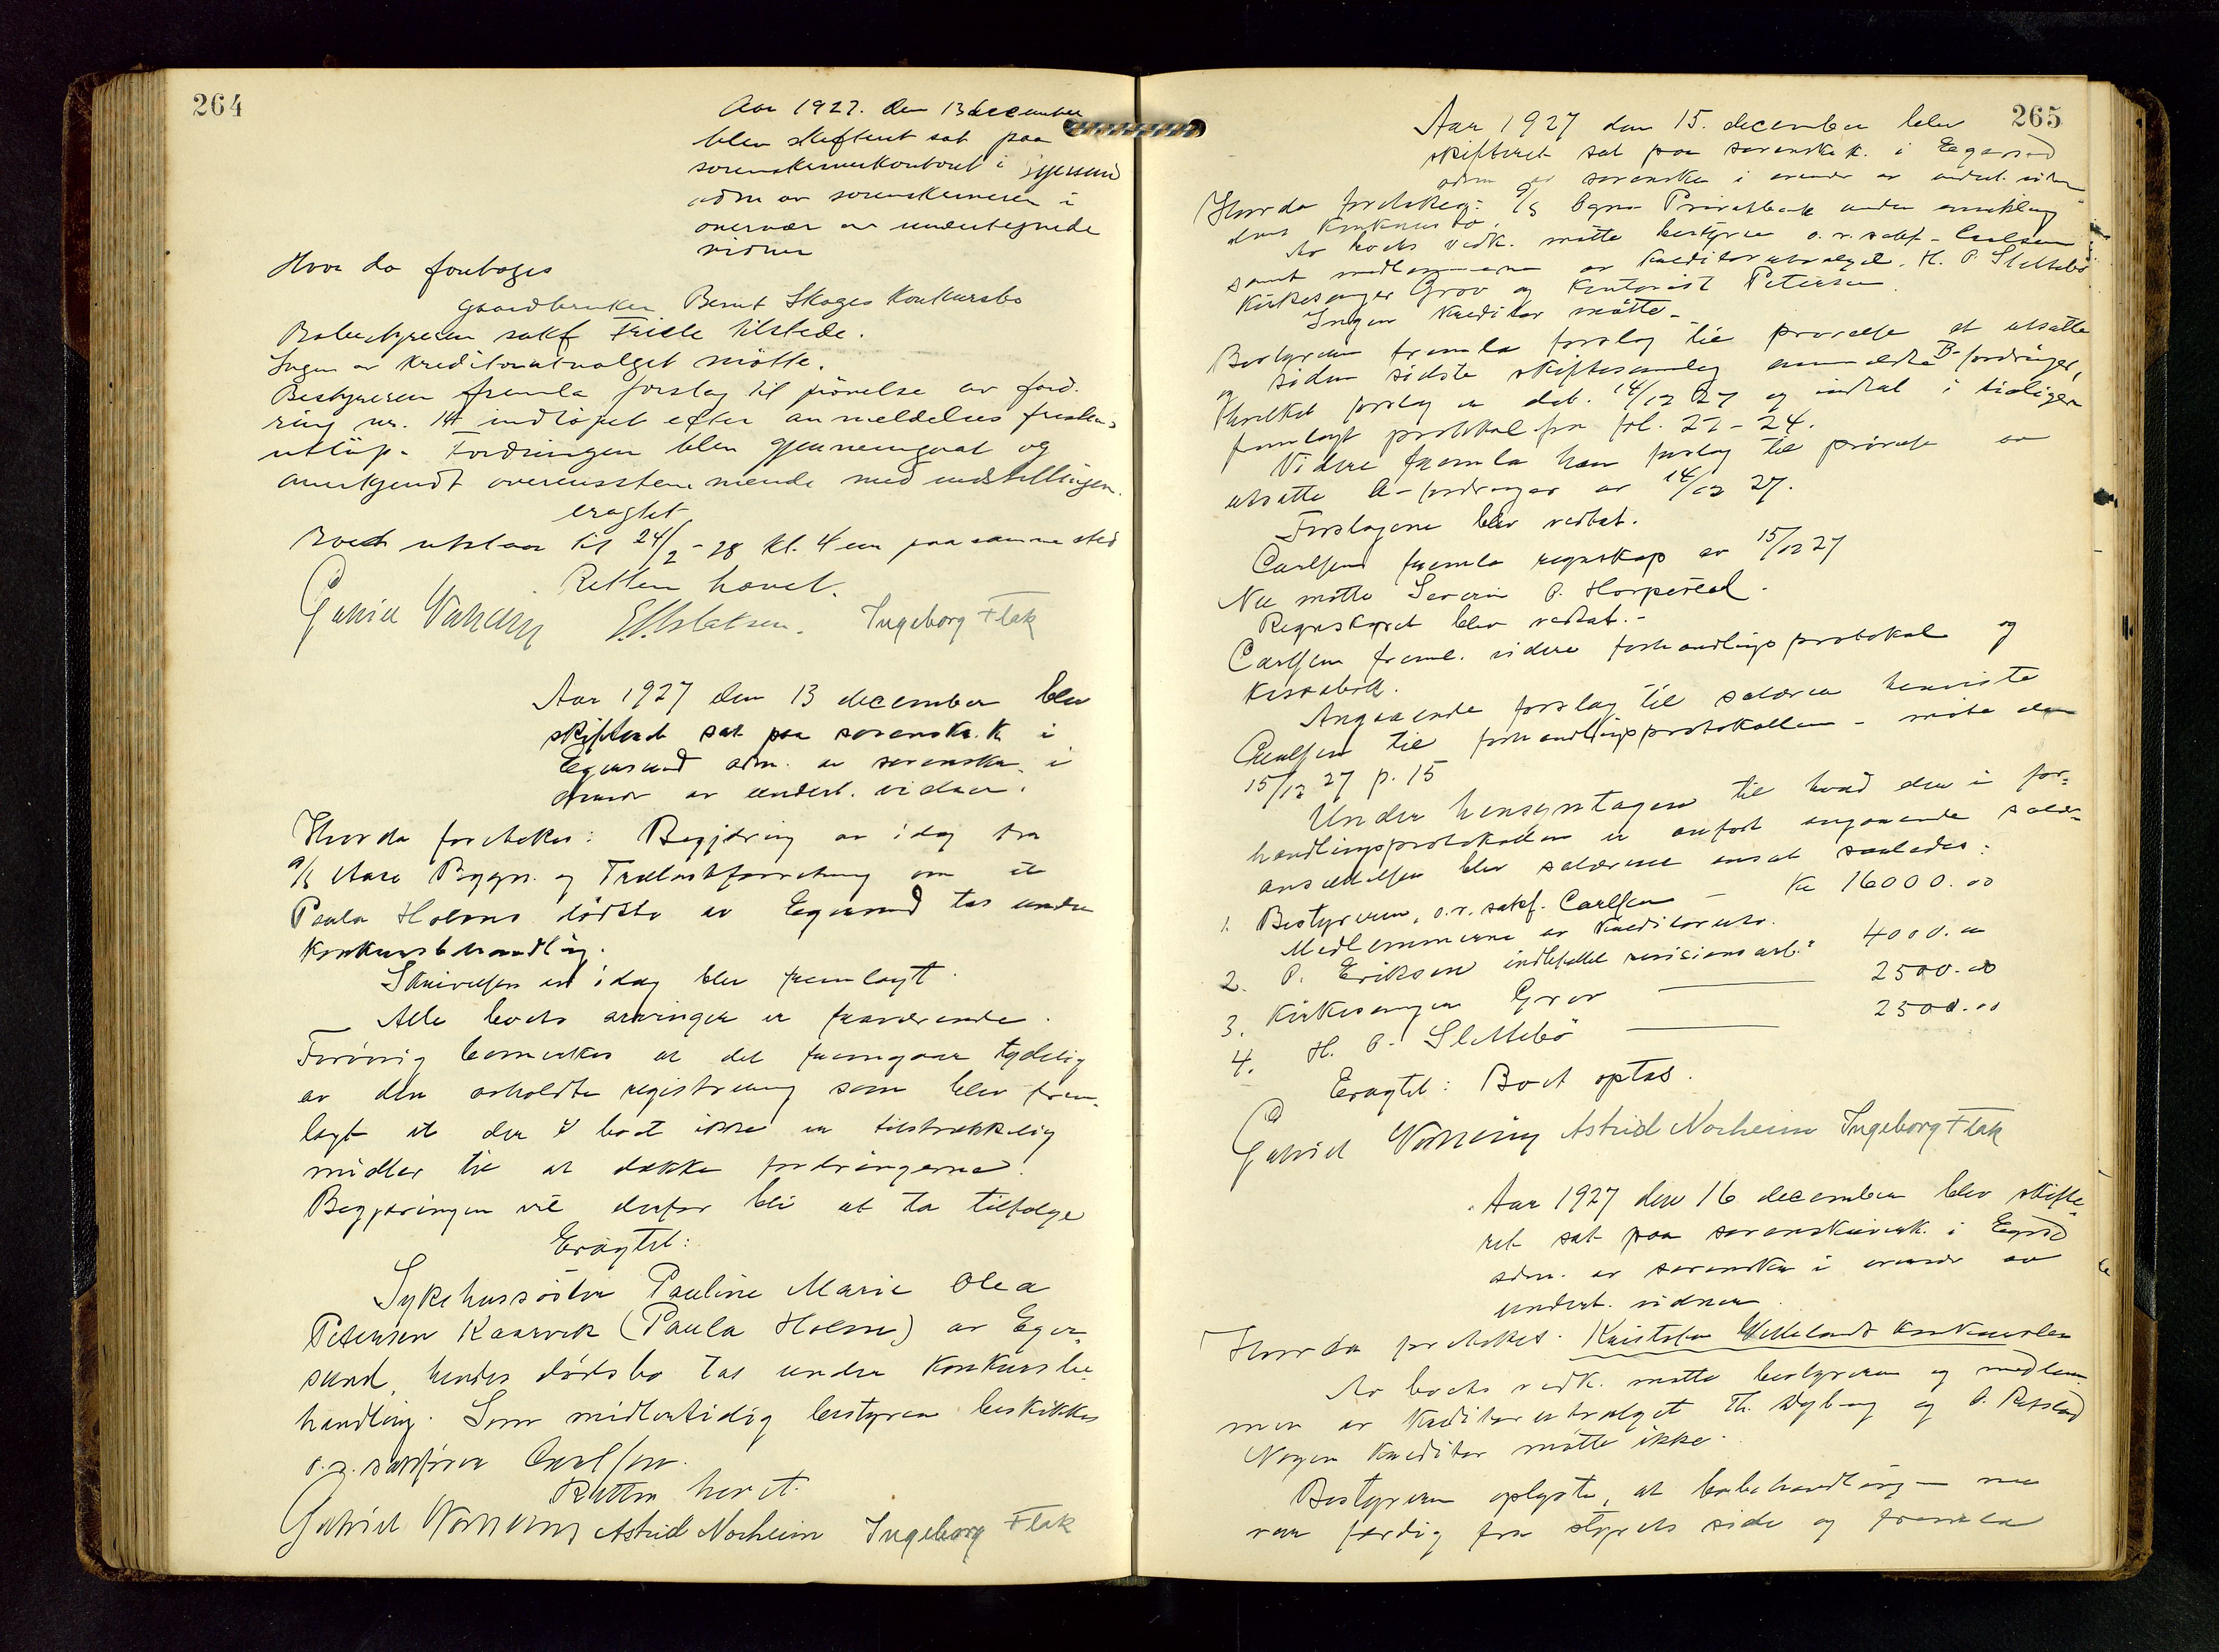 264
Aar 1927. den 13 december
blev skifteret sat paa
sorenskriverkontoret i Egersund
adm av sorenskriveren i
overvær av undertegnede
vidner
Hvor da foretoges
gaardbruker Bernt Skoges Konkursbo
Bobestyreren sakf Friele tilstede.
Ingen av kreditorutvalget møtte.
Bestyreren fremla forslag til prøvelse av ford-
ring nr. 14 indløpet efter anmeldelses fristens
utløp. Fordringen blev gjennemgaat og
anerkjendt overensstemmende med indstillingen.
eragtet
Boet utstaar til 24/2-28 kl. 4 em paa samme sted
Retten hævet.
Gabriel E. Aslaksen. Ingeborg Flak
Aar 1927 den 13 december blev
skifteret sat paa sorenskr.k i
Egersund adm. av sorenskr. i
overvær av undert. vidner.
Hvor da foretokes: Begjæring av idag fra
a/s Aase Bygn. og Trælastforretning om at
Paula Holms dødsbo av Egersund tas under
Konkursbehandling.
Skrivelsen av idag blev fremlagt.
Alle boets arvinger er fraværende.
Forøvrig bemerkes at det fremgaar tydelig
av den avholdte registrering som blev frem-
lagt at der i boet ikke er tilstrækkelig
midler til at dække fordringerne.
Begjæringen vil derfor bli at ta tilfølge
Eragtet:
Sykehussøster Pauline Marie Olea
Petersen Kaarvik (Paula Holm) av Eger-
sund, hendes dødsbo tas under Konkursbe-
handling. Som midlertidig bestyrer beskikkes
o.r. sakfører Carlsen.
Retten hævet.
Gabriel Astrid Norheim Ingeborg Flak
265
Aar 1927 den 15. december blev
skifteret sat paa sorenskr.k. i Egersund
adm av sorenskr i overvær av undert. vidner
Hvor da foretokes: A/S Ogna Privatbank under avvikling
dens Konkursbo.
Av boets vedk. møtte bestyrer o.r.sakf. Carlsen
samt medlemmerne av kreditorutvalget. H. P. Slettebø
Kirkesanger Grov og kontorist Petersen.
Ingen kreditor møtte.
Bestyreren fremla forslag til prøvelse av utsatte
og siden sidste skiftesamling anmeldte B-fordringer,
hvilket forslag er dat. 14/12 27 og indtat i tidligere
fremlagt protokol fra fol. 22-24.
Videre fremla han forslag til prøvelse av
utsatte A-fordringer av 14/12 27.
Forslagene blev vedtat.
Carlsen fremla regnskap av 15/12 27
Nu møtte Severin P. Horpestad.
Regnskapet blev vedtat.-
Carlsen freml. videre forhandlingsprotokol og
kassabok.
Angaaende forslag til salærer henviste
Carlsen til forhandlingsprotokollen - møte den
15/12 27 p. 15
Under hensyntagen til hvad der i for-
handlingsprotokollen er anført angaaende salær-
ansættelsen blev salærene ansat saaledes:
1. Bestyreren, o.r. sakf. Carlsen - Kr 16000.00
Medlemmerne av kreditorutv.
2. P. Eriksen indbefattet revisionsarb. 4000.00
3. Kirkesanger Grov 2500.00
4. H. P. Slettebø 2500.00
Eragtet: Boet optas.
Gabriel Astrid Norheim Ingeborg Flak
Aar 1927 den 16 december blev skifte-
ret sat paa sorenskriverk. i Egersd
adm. av sorenskr i overvær av
undert. vidner
Hvor da foretokes. Kristofer Konkursbo
Av boets vedk. møtte bestyreren og medlem-
mer av Kreditorutvalget Th. og
Nogen kreditor møtte ikke.
Bestyreren oplyste, at bobehandlingen nu
var færdig fra styrets side og fremla